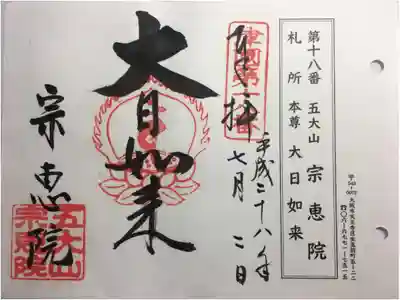 第十八番 五大山 宗恵院
札所 本尊 大日如来
奉拝
平成二十八年
七月 二日
大日如来
宗恵院
五大山
宗恵院